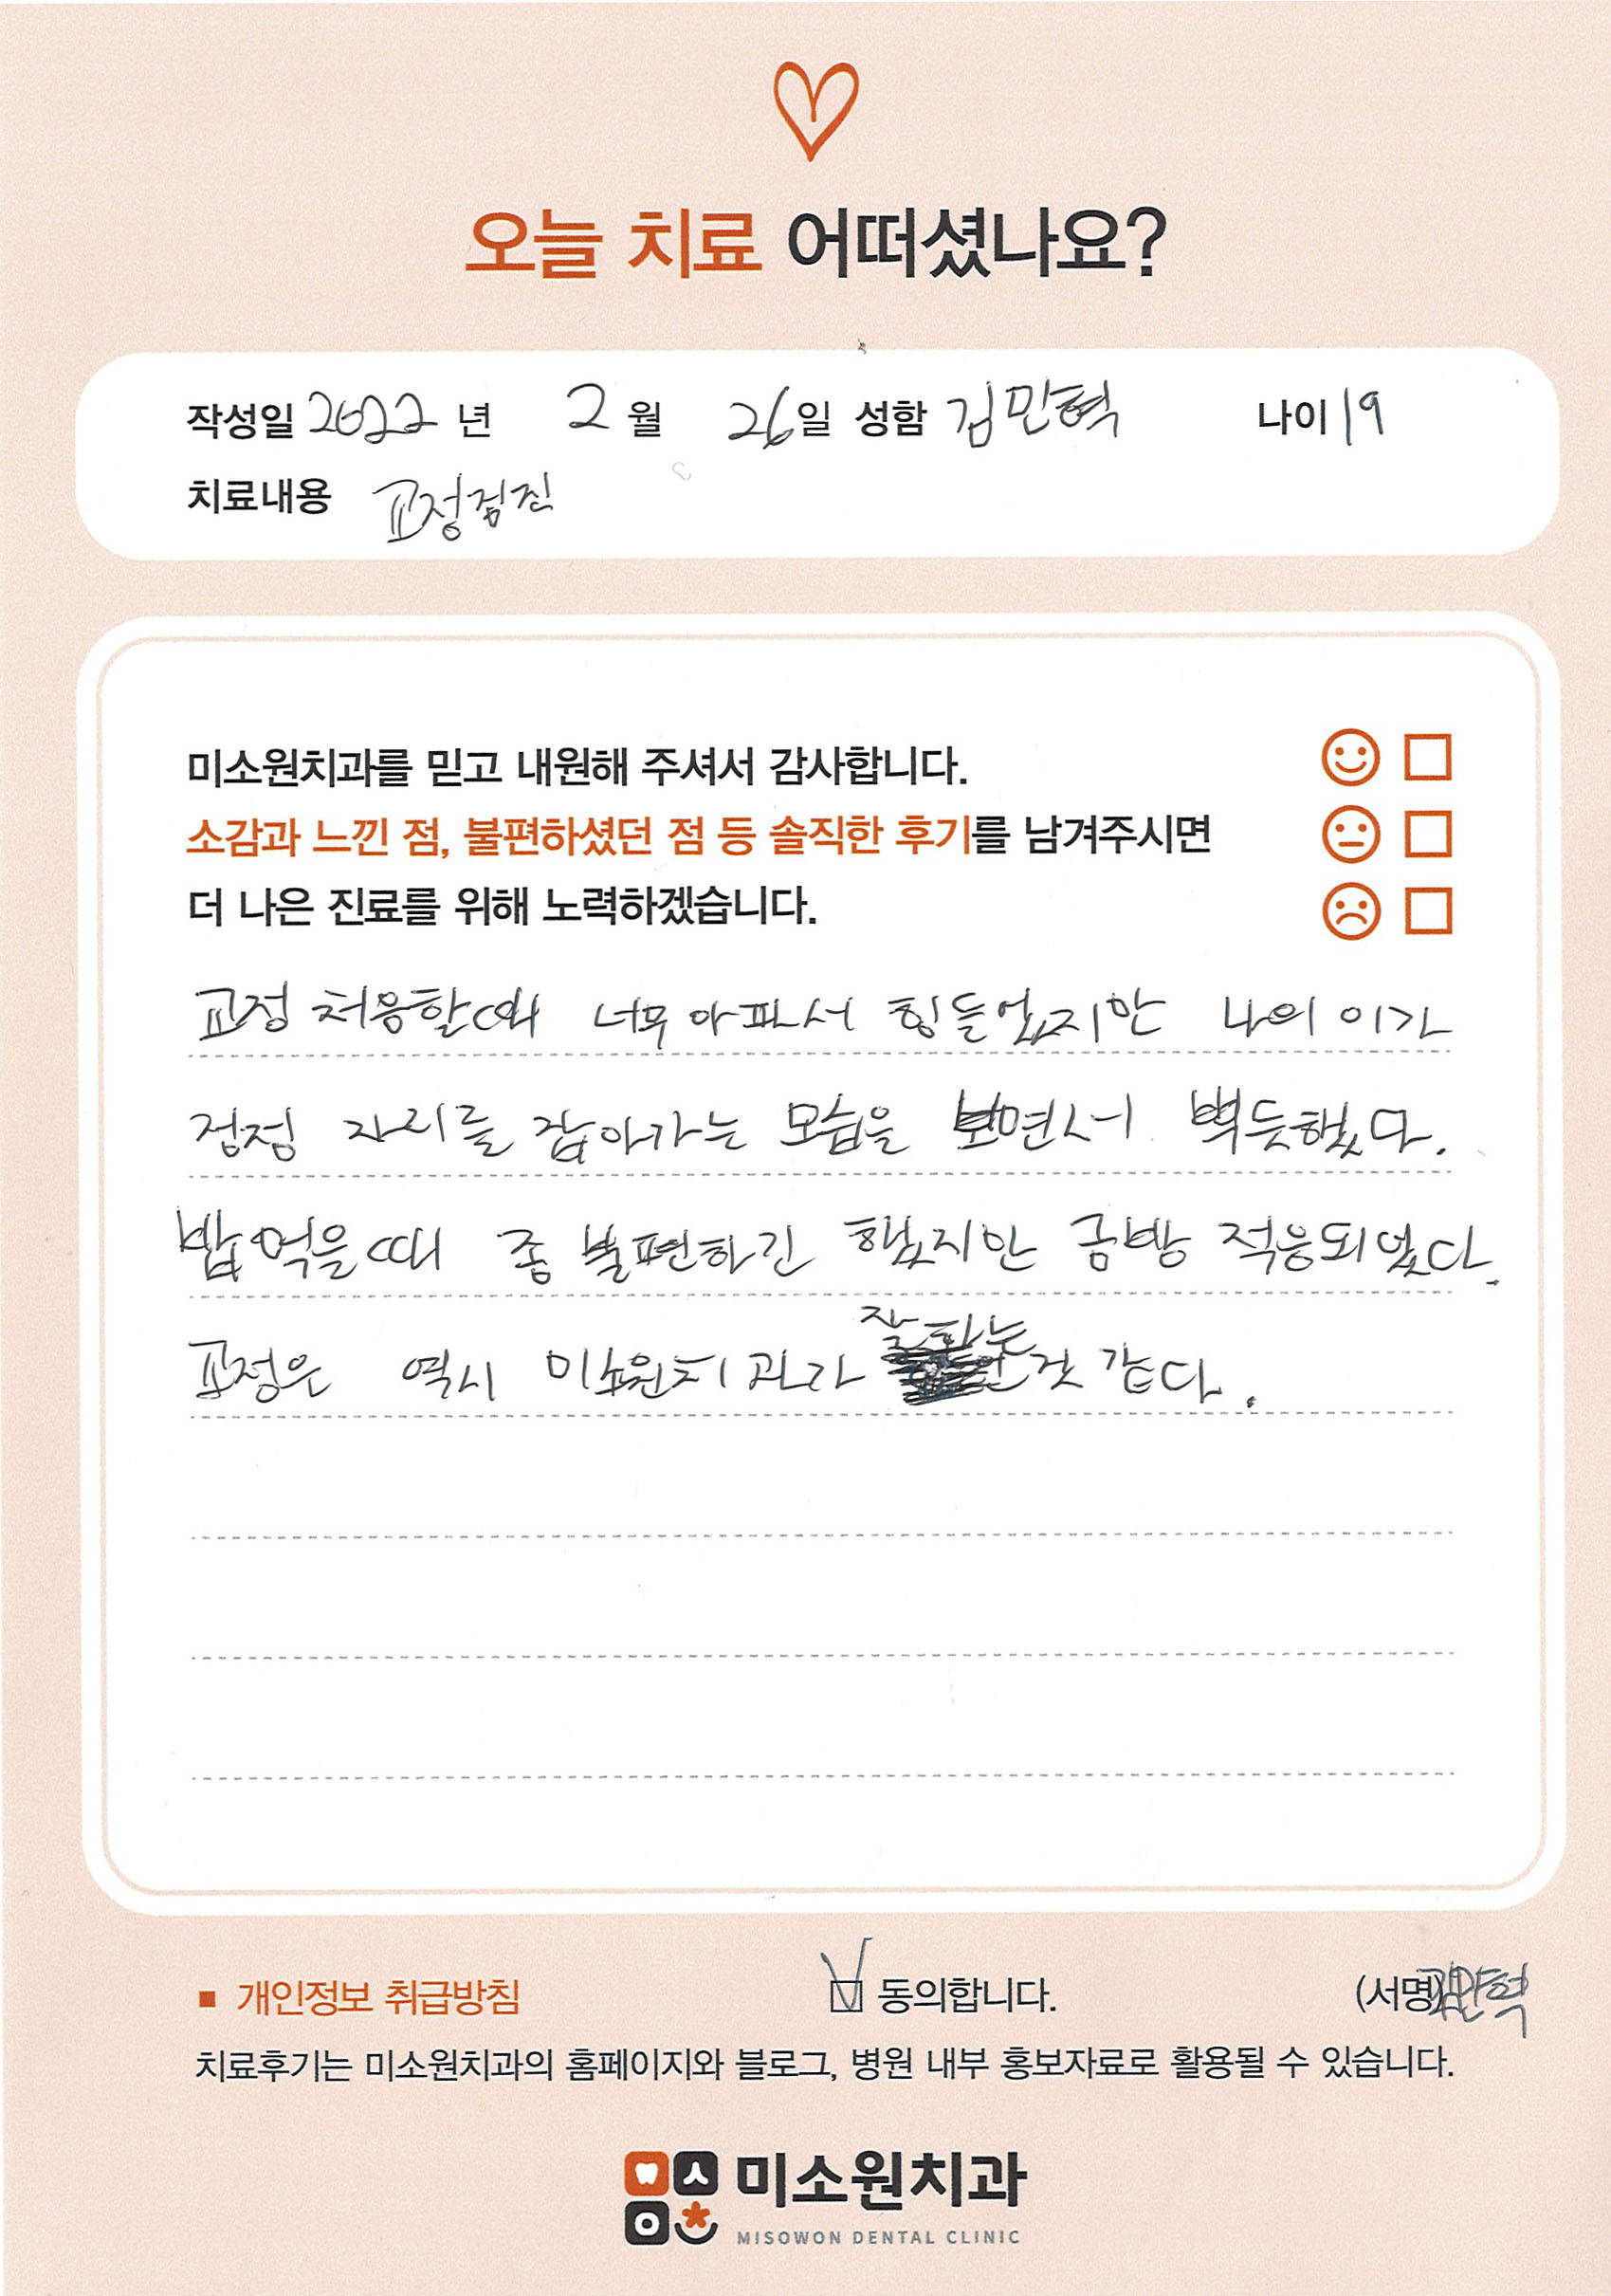 오늘 치료 어떠셨나요?
작성일 2022 년 2 월 26 일 성함 김민혁 나이 19
치료내용 교정점진
미소원치과를 믿고 내원해 주셔서 감사합니다.
소감과 느낀 점, 불편하셨던 점 등 솔직한 후기를 남겨주시면
더 나은 진료를 위해 노력하겠습니다.
교정 처음할때 너무 아파서 힘들었지만 나의 이가
점점 자리를 잡아가는 모습을 보면서 뿌듯했다.
밥먹을때 좀 불편하긴 했지만 금방 적응되었다.
교정은 역시 미소원치과가 잘하는 것 같다.
▪ 개인정보 취급방침 동의합니다. (서명) 김민혁
치료후기는 미소원치과의 홈페이지와 블로그, 병원 내부 홍보자료로 활용될 수 있습니다.
미소원치과
MISOWON DENTAL CLINIC